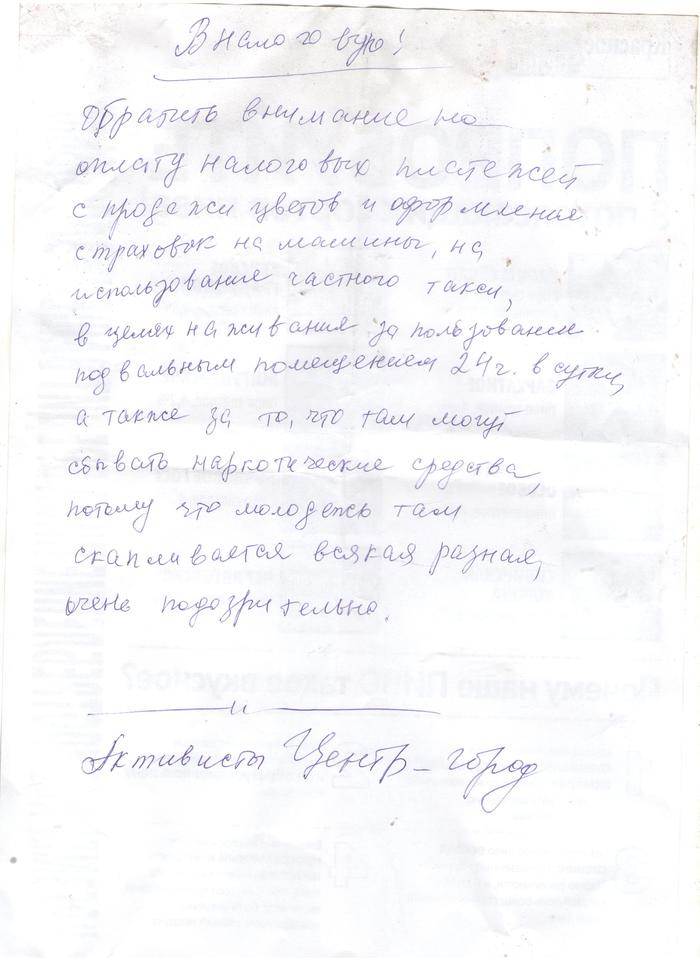 В налоговую!
Обратить внимание на
оплату налоговых платежей
с продажи цветов и оформление
страховок на машины, на
использование частного такси,
в целях наживания за пользование
подвальным помещением 24 ч. в сутки,
а также за то, что там могут
сбывать наркотические средства,
потому что молодежь там
скапливается всякая разная,
очень подозрительно.
Активисты Центр-город
Почему наше ПИНО такое вкусное?